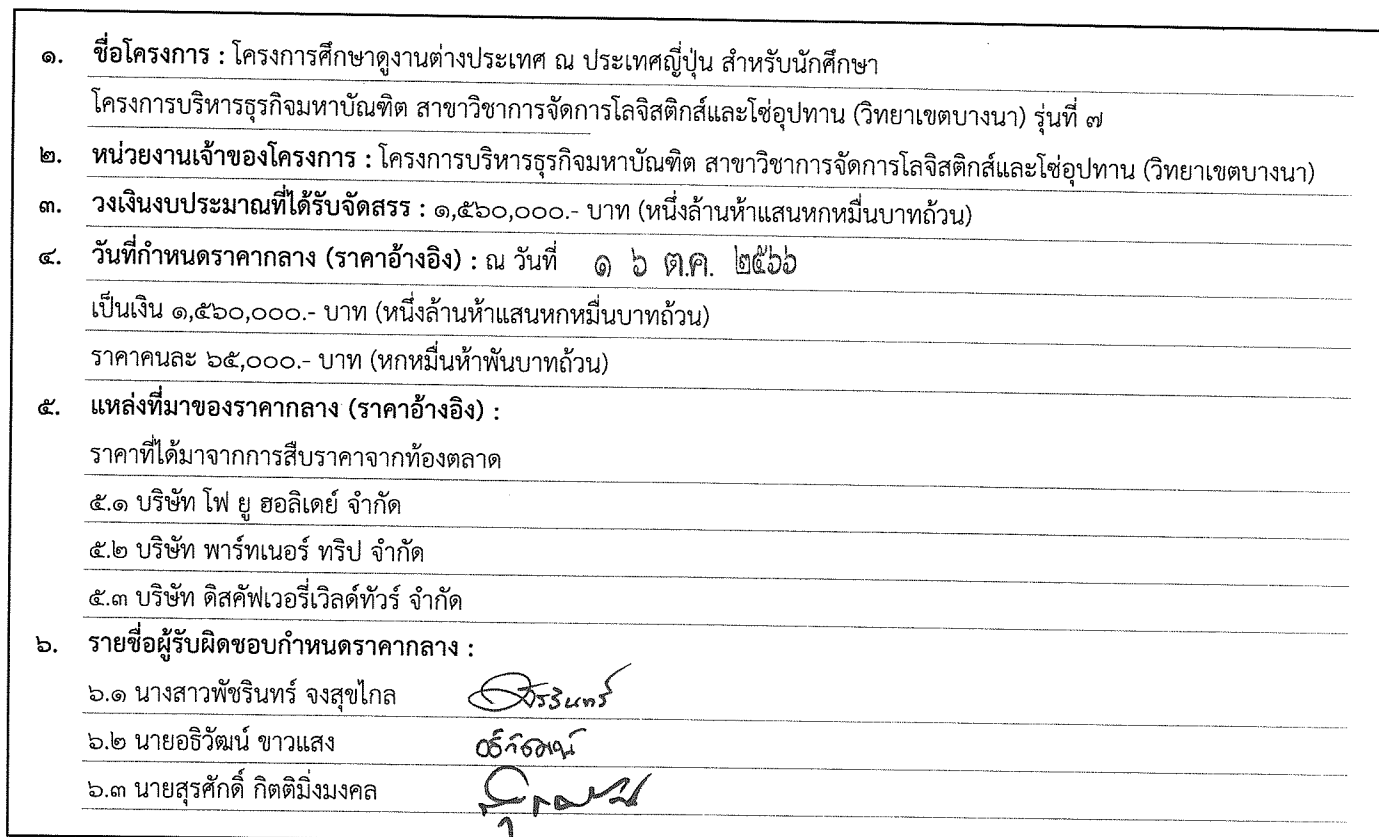 ๑. ชื่อโครงการ : โครงการศึกษาดูงานต่างประเทศ ณ ประเทศญี่ปุ่น สำหรับนักศึกษา
โครงการบริหารธุรกิจมหาบัณฑิต สาขาวิชาการจัดการโลจิสติกส์และโซ่อุปทาน (วิทยาเขตบางนา) รุ่นที่ ๗
๒. หน่วยงานเจ้าของโครงการ : โครงการบริหารธุรกิจมหาบัณฑิต สาขาวิชาการจัดการโลจิสติกส์และโซ่อุปทาน (วิทยาเขตบางนา)
๓. วงเงินงบประมาณที่ได้รับจัดสรร : ๑,๕๖๐,๐๐๐.- บาท (หนึ่งล้านห้าแสนหกหมื่นบาทถ้วน)
๔. วันที่กำหนดราคากลาง (ราคาอ้างอิง) : ณ วันที่ ๑ ๖ ต.ค. ๒๕๖๖
เป็นเงิน ๑,๕๖๐,๐๐๐.- บาท (หนึ่งล้านห้าแสนหกหมื่นบาทถ้วน)
ราคาคนละ ๖๕,๐๐๐.- บาท (หกหมื่นห้าพันบาทถ้วน)
๕. แหล่งที่มาของราคากลาง (ราคาอ้างอิง) :
ราคาที่ได้มาจากการสืบราคาจากท้องตลาด
๕.๑ บริษัท โฟ ยู ฮอลิเดย์ จำกัด
๕.๒ บริษัท พาร์ทเนอร์ ทริป จำกัด
๕.๓ บริษัท ดิสคัฟเวอรี่เวิลด์ทัวร์ จำกัด
๖. รายชื่อผู้รับผิดชอบกำหนดราคากลาง :
๖.๑ นางสาวพัชรินทร์ จงสุขไกล
๖.๒ นายอธิวัฒน์ ขาวแสง อธิวัฒน์
๖.๓ นายสุรศักดิ์ กิตติมิ่งมงคล